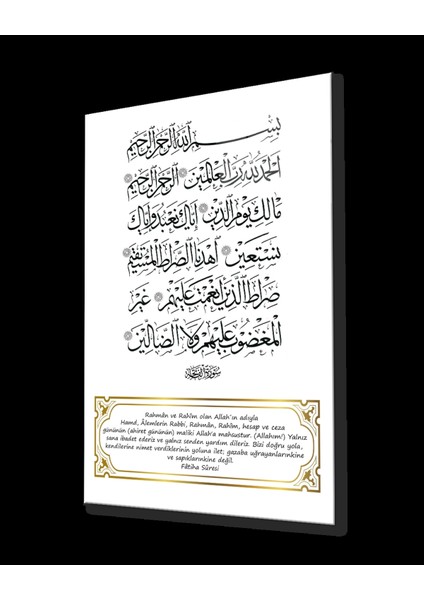 بسم الله الرحمن الرحيم
الحمد لله رب العالمين الرحمن الرحيم
مالك يوم الدين إياك نعبد وإياك
نستعين اهدنا الصراط المستقيم
صراط الذين أنعمت عليهم غير
المغضوب عليهم ولا الضالين
سورة الفاتحة
Rahmân ve Rahîm olan Allah'ın adıyla
Hamd, Âlemlerin Rabbi, Rahmân, Rahîm, hesap ve ceza
gününün (ahiret gününün) maliki Allah'a mahsustur. (Allahım!) Yalnız
sana ibadet ederiz ve yalnız senden yardım dileriz. Bizi doğru yola,
kendilerine nimet verdiklerinin yoluna ilet; gazaba uğrayanlarınkine
ve sapıklarınkine değil.
Fâtiha Sûresi